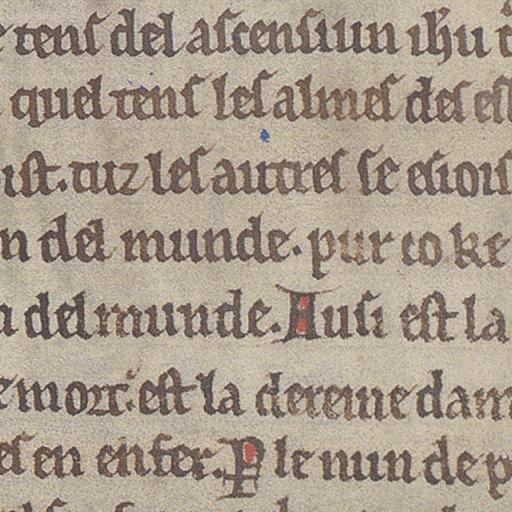 tens del ascensiun ihu
quel tens les almes des es
ist. tuz les autres se esiois
n del munde. pur co ke
del munde. Ausi est la
mort est la dereine dam
es en enfer. P le nun de p